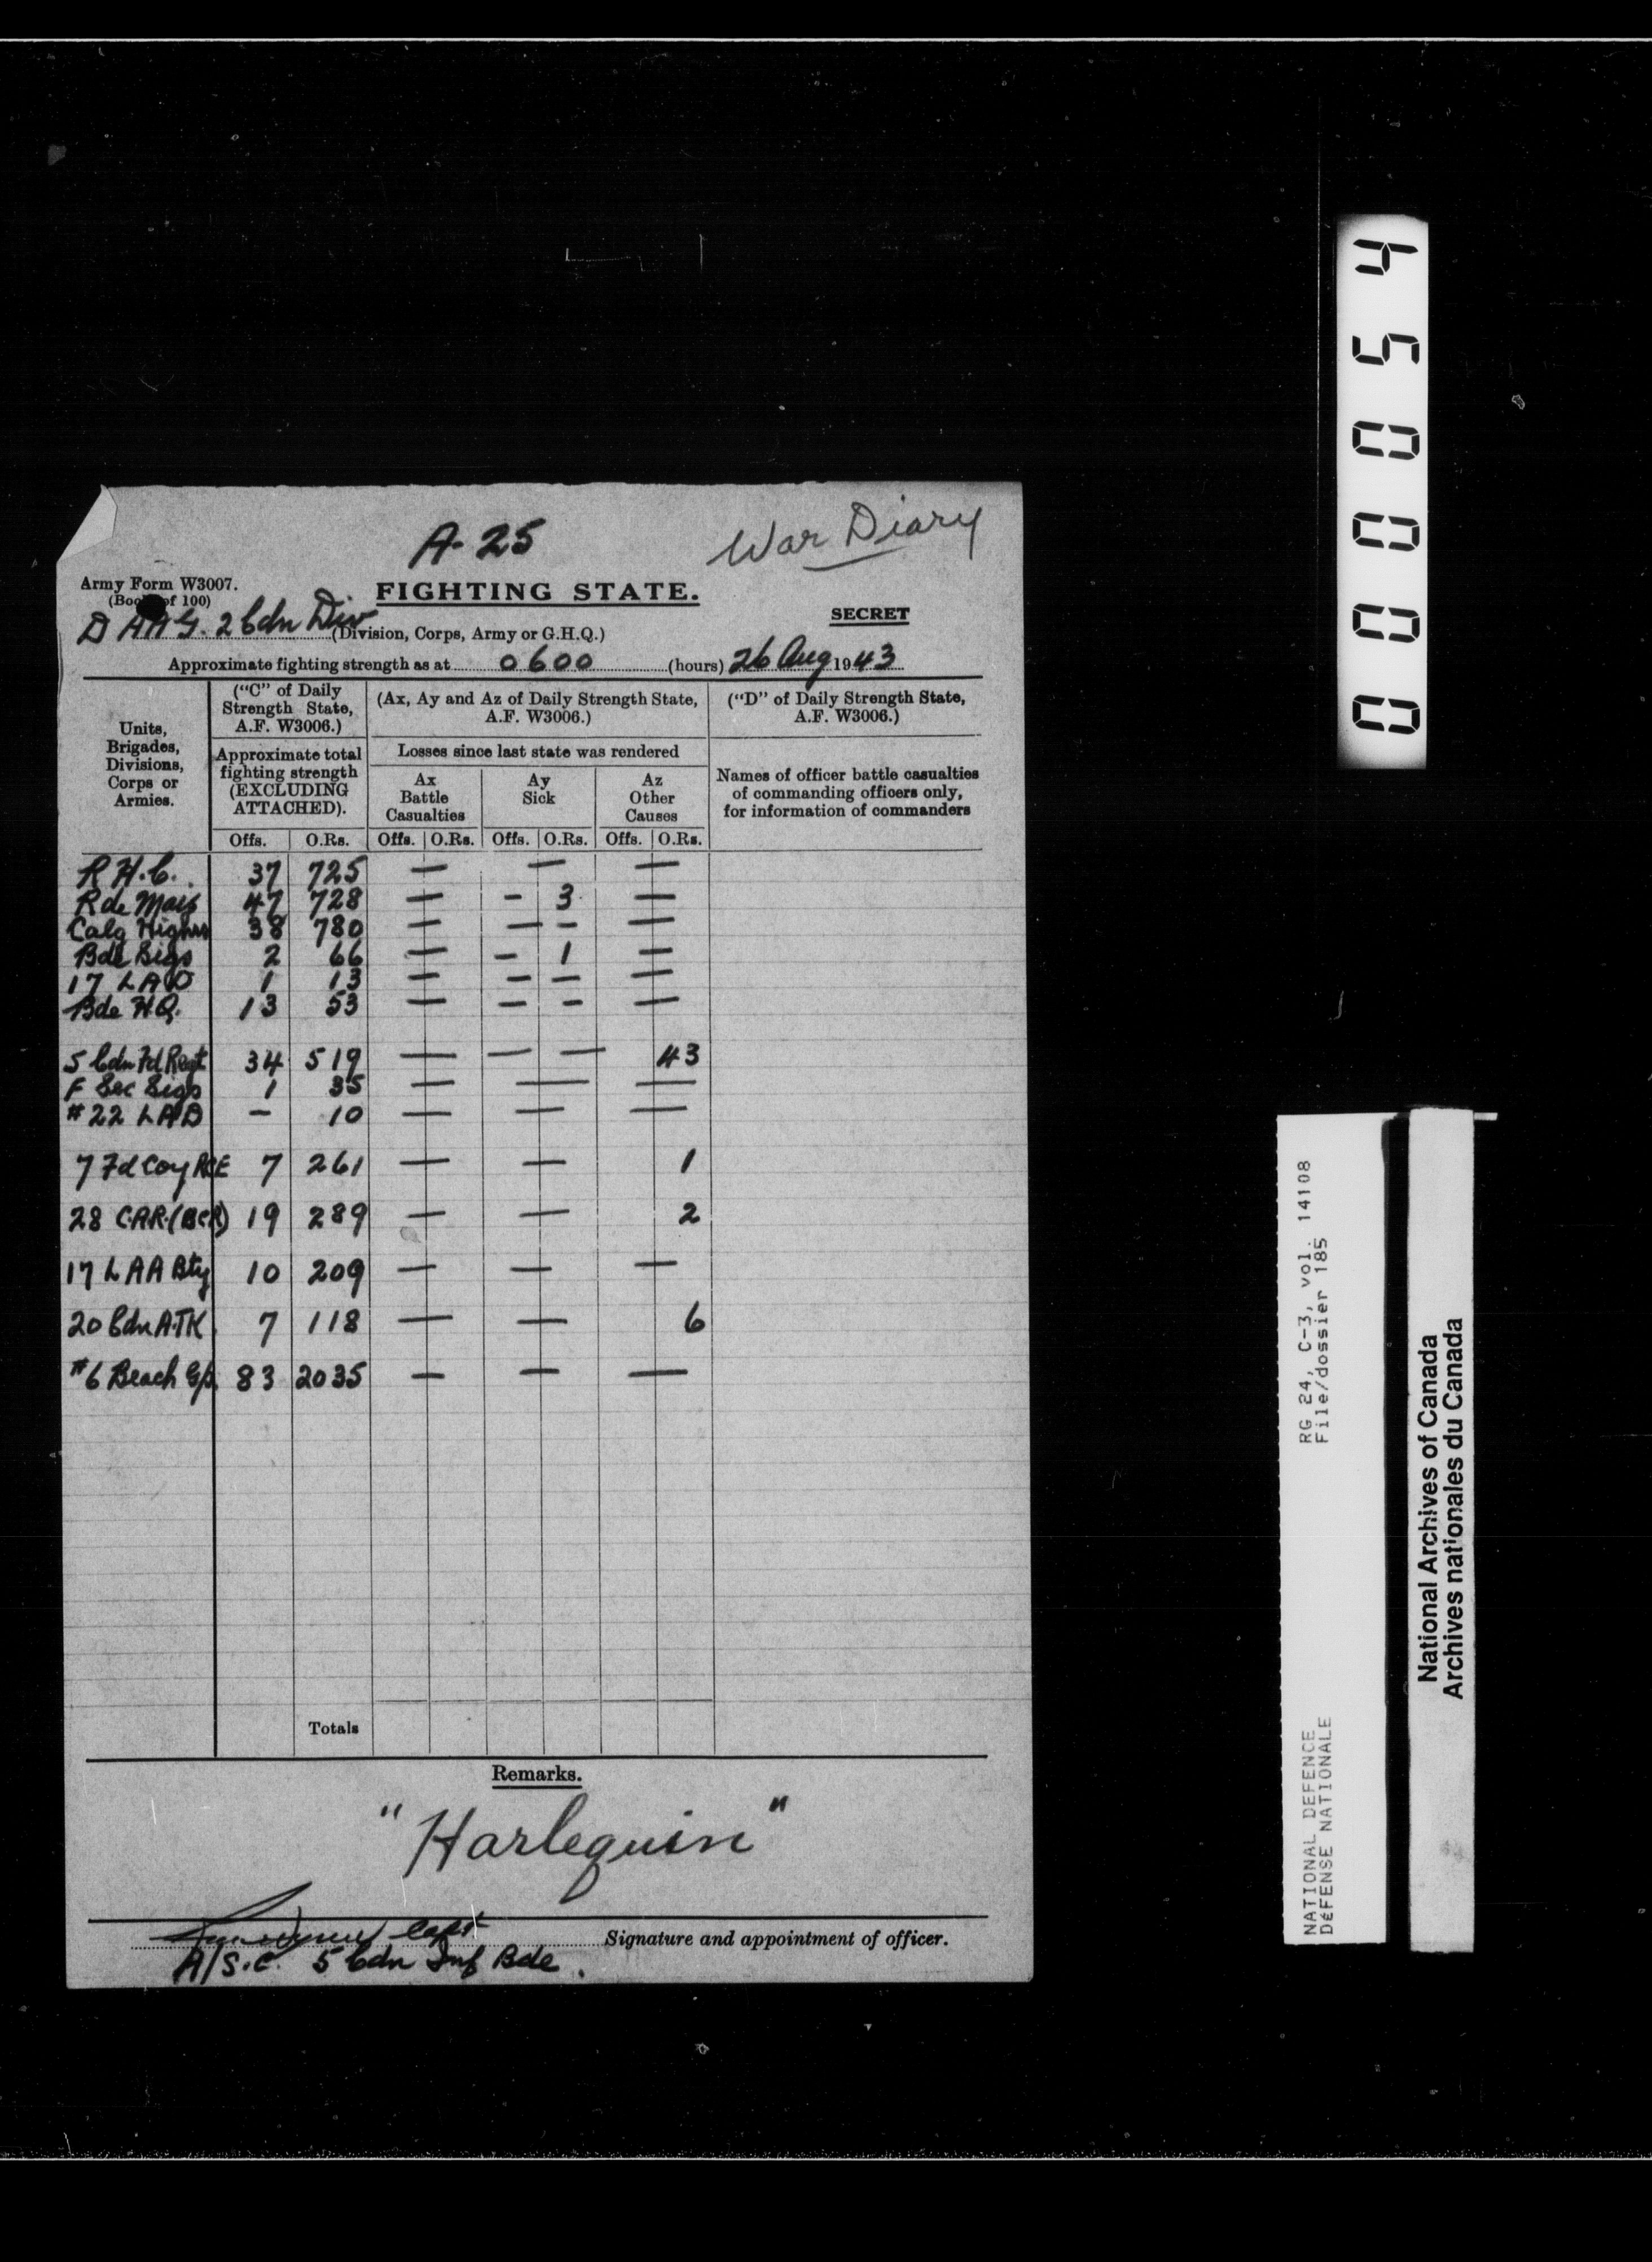 A-25
War Diary
Army Form W3007.
(Book of 100)
FIGHTING STATE.
SECRET
D AAG. 2 Cdn Div (Division, Corps, Army or G.H.Q.)
Approximate fighting strength as at 0600 (hours) 26 Aug 1943
Units, Brigades, Divisions, Corps or Armies.
("C" of Daily Strength State, A.F. W3006.)
(Ax, Ay and Az of Daily Strength State, A.F. W3006.)
("D" of Daily Strength State, A.F. W3006.)
Approximate total fighting strength (EXCLUDING ATTACHED).
Losses since last state was rendered
Names of officer battle casualties of commanding officers only, for information of commanders
Ax Battle Casualties
Ay Sick
Az Other Causes
Offs. O.Rs. Offs. O.Rs. Offs. O.Rs. Offs. O.Rs.
R.H.C. 37 725 — — —
R de Mais 47 728 — - 3 —
Calg Highrs 38 780 — — - —
Bde Sigs 2 66 — - 1 —
17 LAD 1 13 — - - —
Bde H.Q. 13 53 — - - —
5 Cdn Fd Regt 34 519 — — — 43
F Sec Sigs 1 35 — — —
#22 LAD - 10 — — —
7 Fd Coy RCE 7 261 — — 1
28 C.A.R. (BCR) 19 289 — — 2
17 LAA Bty 10 209 — — —
20 Cdn A-TK 7 118 — — 6
#6 Beach Gp. 83 2035 — — —
Totals
Remarks.
"Harlequin"
Capt
Signature and appointment of officer.
A/S.C. 5 Cdn Inf Bde.
00054
RG 24, C-3, vol. 14108
File/dossier 185
NATIONAL DEFENCE
DÉFENSE NATIONALE
National Archives of Canada
Archives nationales du Canada